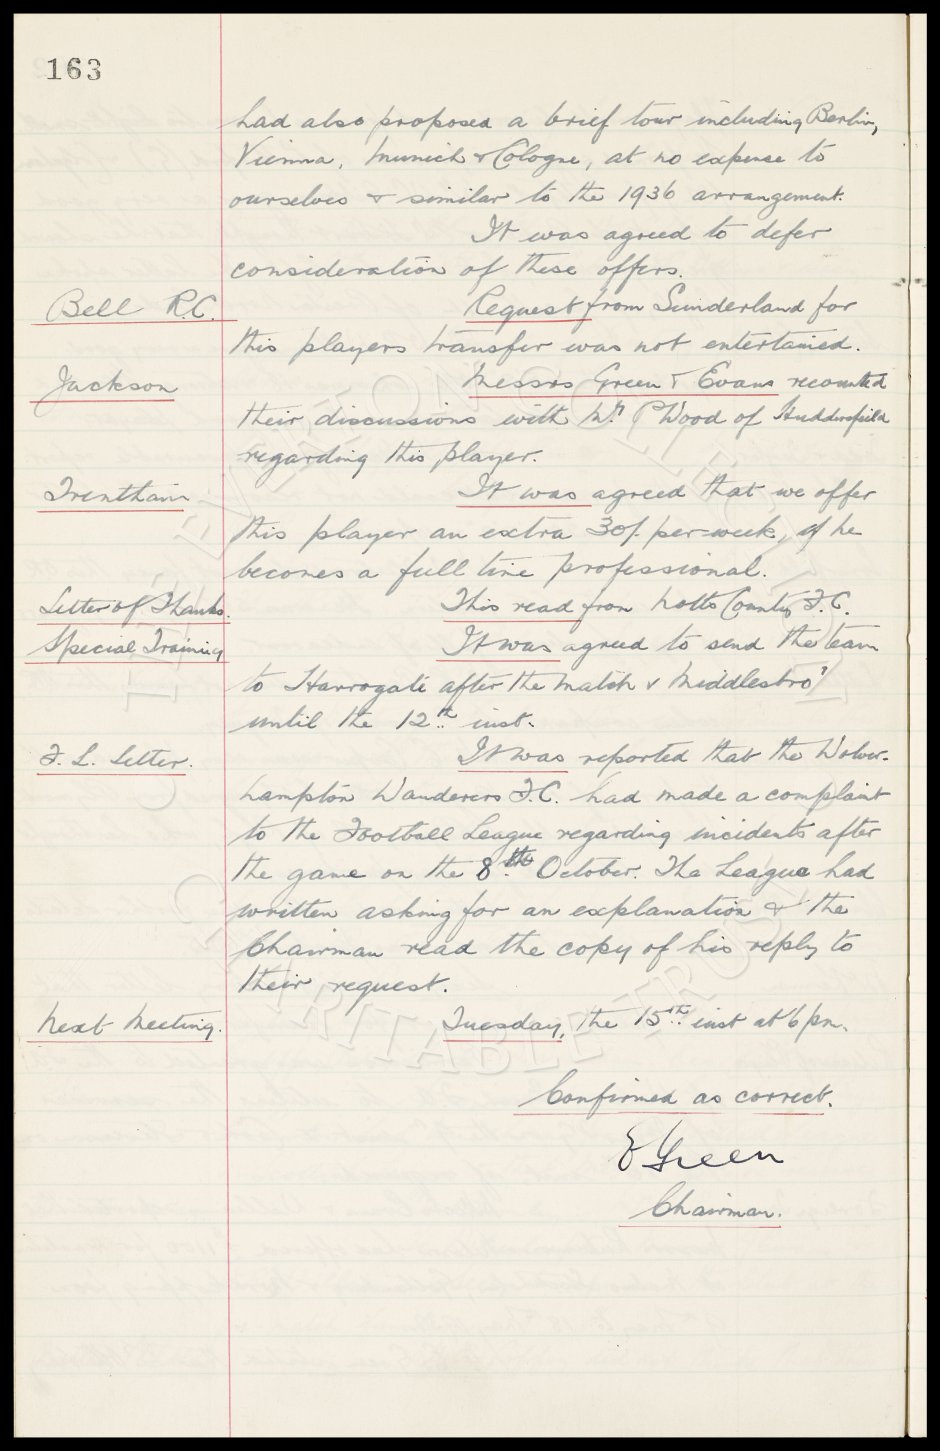 163
had also proposed a brief tour including Berlin,
Vienna, Munich & Cologne, at no expense to
ourselves & similar to the 1936 arrangement.
It was agreed to defer
consideration of these offers.
Bell R.C. Request from Sunderland for
this players transfer was not entertained.
Jackson Messrs Green & Evans recounted
their discussions with Mr P Wood of Huddersfield
regarding this player.
Trentham It was agreed that we offer
this player an extra 30/. per week, if he
becomes a full time professional.
Letter of Thanks. This read from Notts County F.C.
Special Training It was agreed to send the team
to Harrogate after the match v Middlesbro'
until the 12th inst.
F. L. Letter. It was reported that the Wolver-
hampton Wanderers F.C. had made a complaint
to the Football League regarding incidents after
the game on the 8th October. The League had
written asking for an explanation & the
Chairman read the copy of his reply to
their request.
Next Meeting. Tuesday, the 15th inst at 6 pm.
Confirmed as correct.
E Green
Chairman.
THE EVERTON COLLECTION
CHARITABLE TRUST